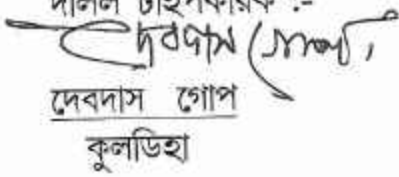 দলিল টাইপকারক :-
দেবদাস গোপ,
দেবদাস গোপ
কুলডিহা